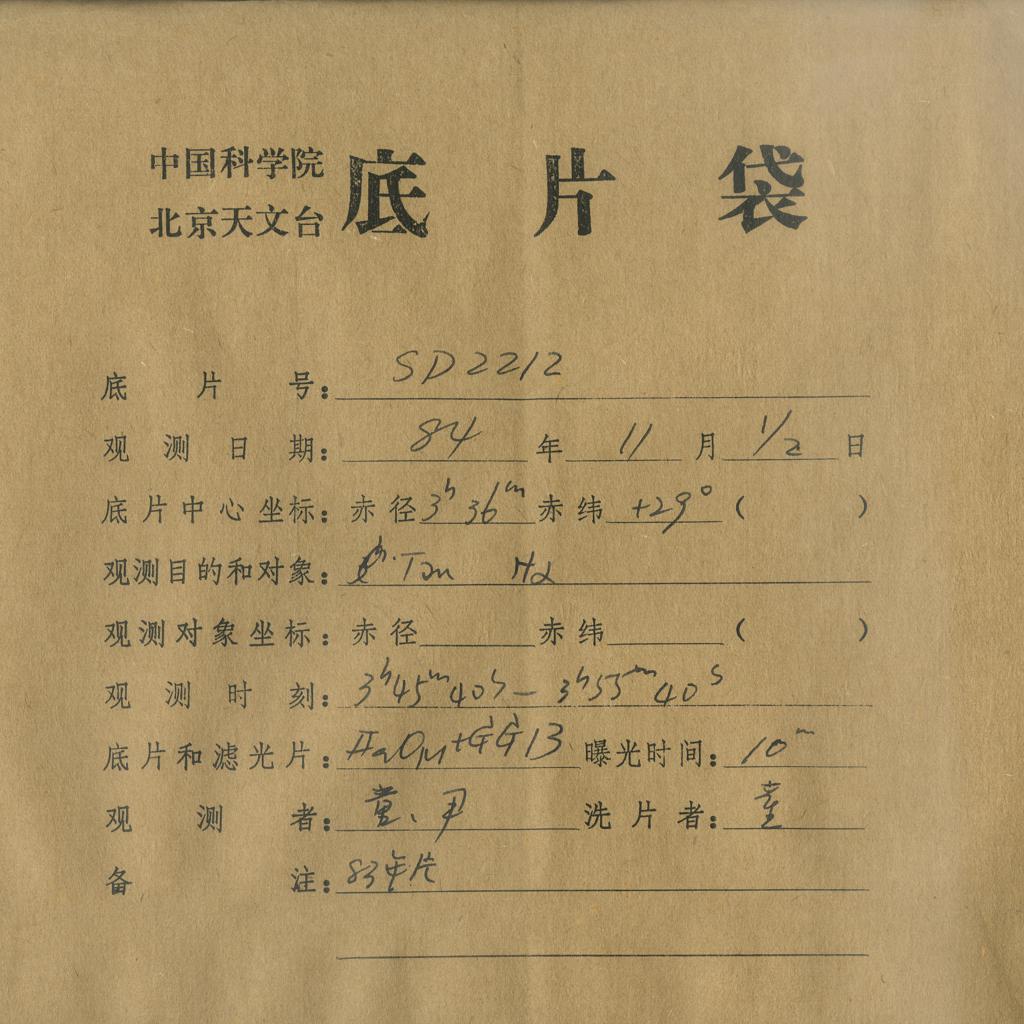 中国科学院
北京天文台 底片袋
底片号: SD2212
观测日期: 84年 11月 1/2日
底片中心坐标: 赤径 3h 36m 赤纬 +29° ( )
观测目的和对象: Tau Hα
观测对象坐标: 赤径 赤纬 ( )
观测时刻: 3h45m40s — 3h55m40s
底片和滤光片: IIaO +GG13 曝光时间: 10m
观测者: 童、尹 洗片者: 童
备注: 83年片